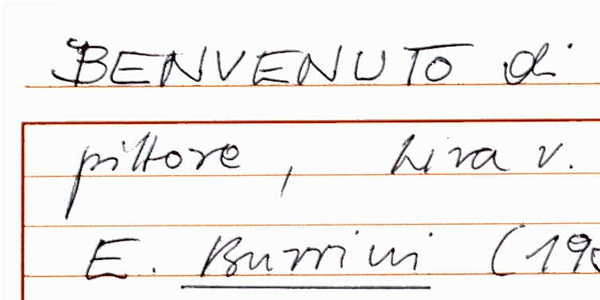 BENVENUTO di
pittore, Lira v.
E. Burrini (190